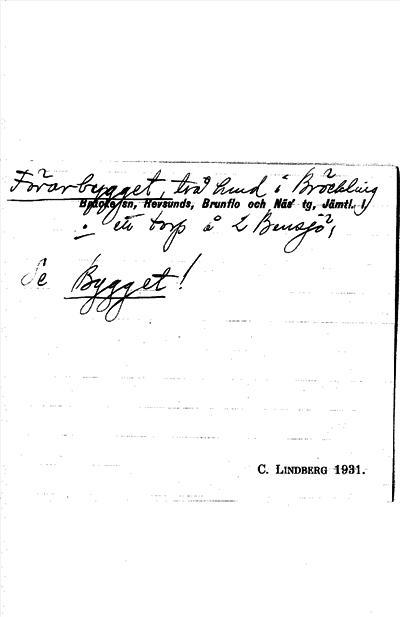 Förarbygget, två hmd i Bräckling
Bräcke sn, Revsunds, Brunflo och Näs tg, Jämtl. l.
• ett torp å 2 Bensjö,
Se Bygget!
C. LINDBERG 1931.